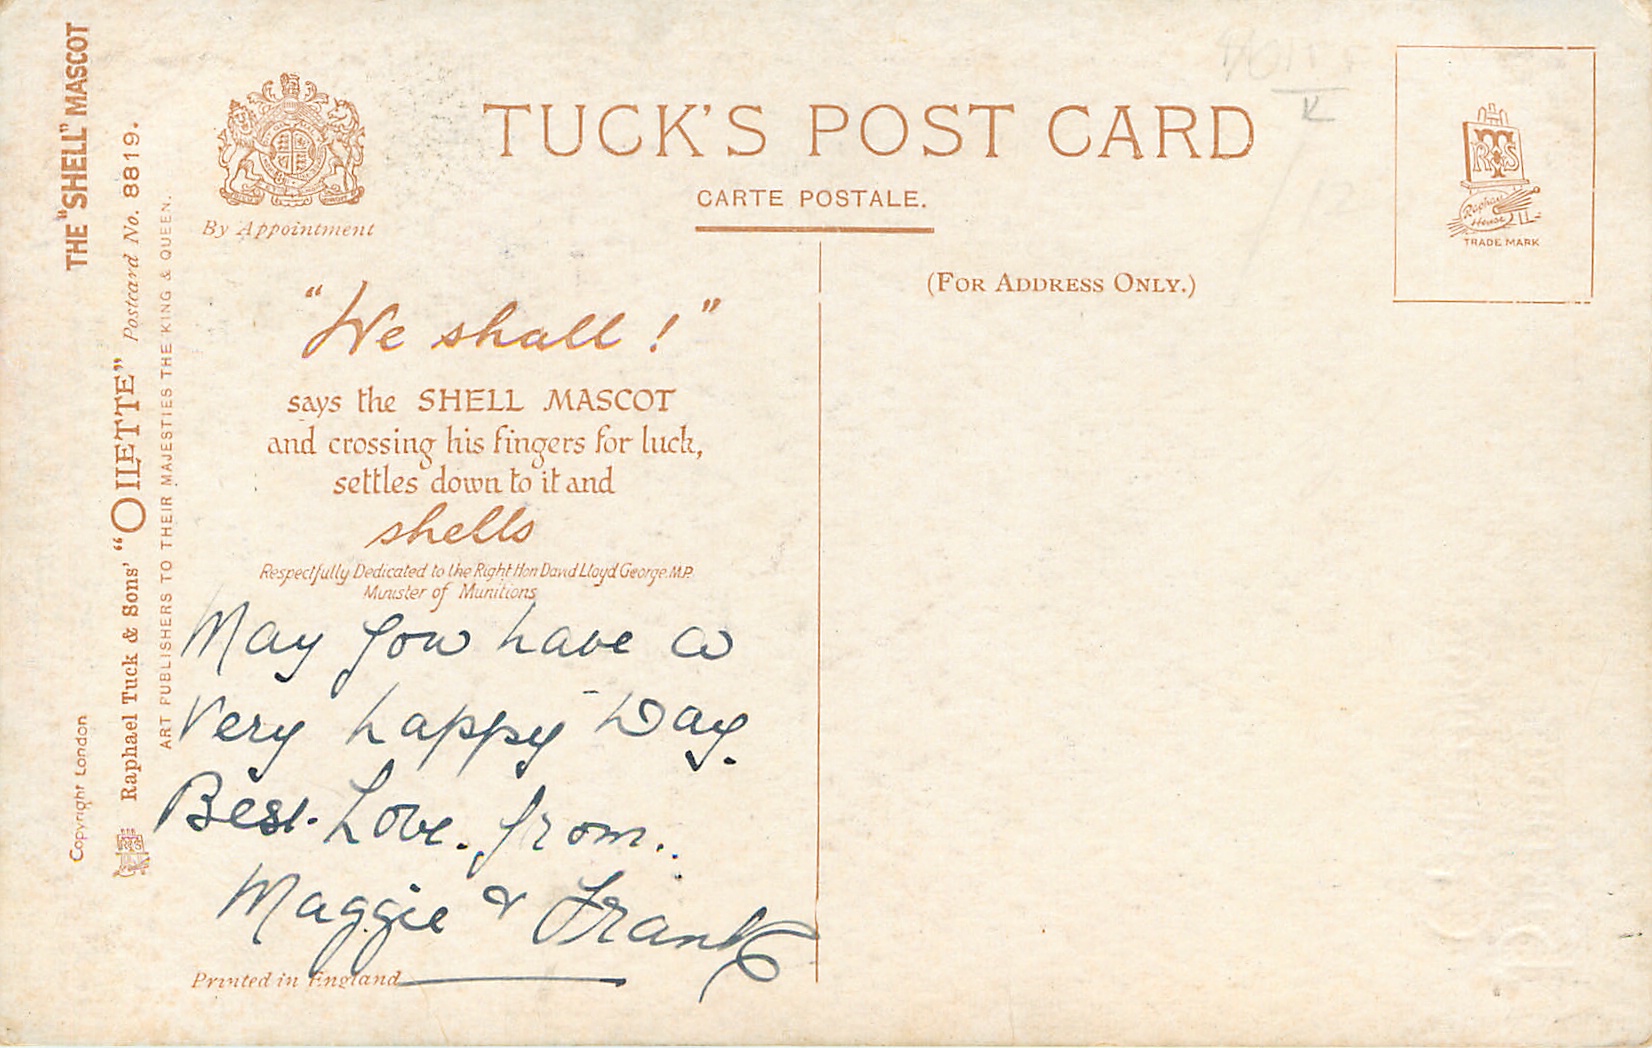 THE "SHELL" MASCOT
Copyright London
Raphael Tuck & Sons' "OILETTE" Postcard No. 8819.
ART PUBLISHERS TO THEIR MAJESTIES THE KING & QUEEN.
By Appointment
TUCK'S POST CARD
CARTE POSTALE.
(FOR ADDRESS ONLY.)
Raphael House
TRADE MARK
"We shall!"
says the SHELL MASCOT
and crossing his fingers for luck,
settles down to it and
shells
Respectfully Dedicated to the Right Hon David Lloyd George. M.P.
Minister of Munitions
May you have a
very happy Day.
Best. Love. from.
Maggie & Frank
Printed in England